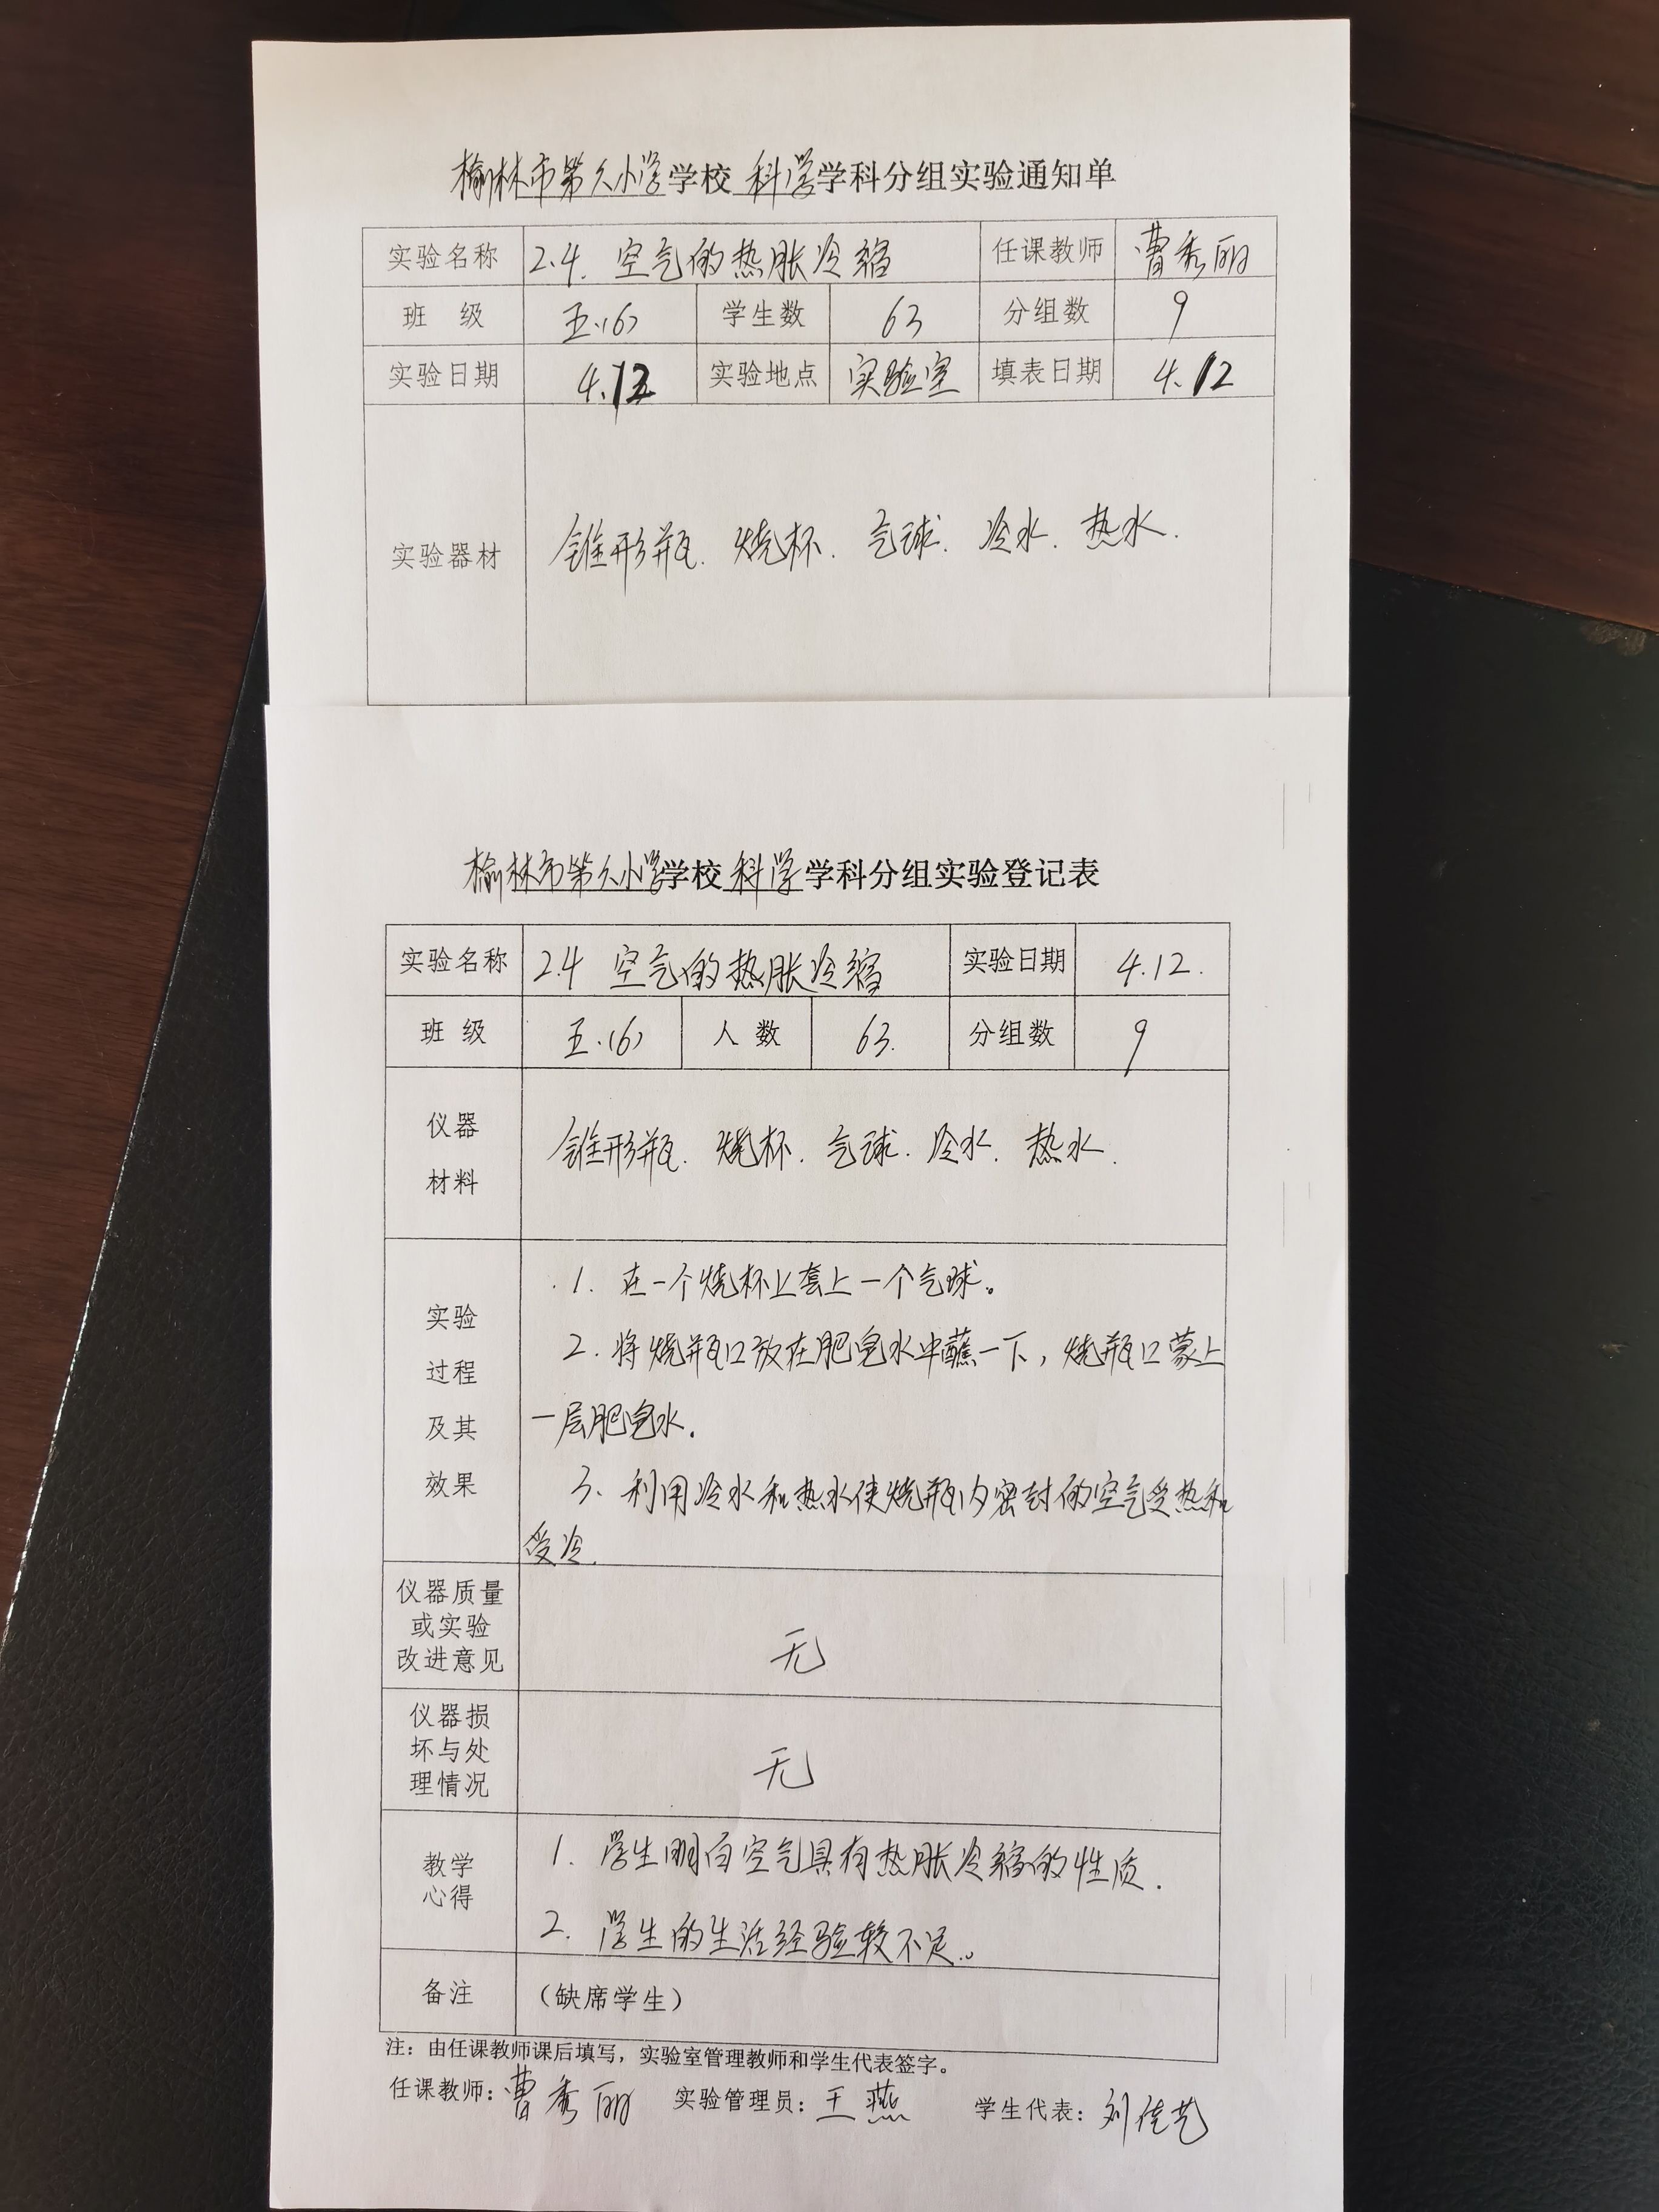 榆林市第八小学学校 科学学科分组实验通知单
实验名称 2.4. 空气的热胀冷缩 任课教师 曹秀丽
班 级 五.(6) 学生数 63 分组数 9
实验日期 4.12 实验地点 实验室 填表日期 4.12
实验器材 锥形瓶. 烧杯. 气球. 冷水. 热水.
榆林市第八小学学校 科学学科分组实验登记表
实验名称 2.4 空气的热胀冷缩 实验日期 4.12.
班 级 五.(6) 人 数 63. 分组数 9
仪器
材料
锥形瓶. 烧杯. 气球. 冷水. 热水.
实验
过程
及其
效果
1. 在一个烧杯上套上一个气球。
2. 将烧瓶口放在肥皂水中蘸一下, 烧瓶口蒙上
一层肥皂水.
3. 利用冷水和热水使烧瓶内密封的空气受热和
受冷.
仪器质量
或实验
改进意见
无
仪器损
坏与处
理情况
无
教学
心得
1. 学生明白空气具有热胀冷缩的性质.
2. 学生的生活经验较不足.。
备注 （缺席学生）
注：由任课教师课后填写，实验室管理教师和学生代表签字。
任课教师：曹秀丽 实验管理员：王燕 学生代表：刘佳艺